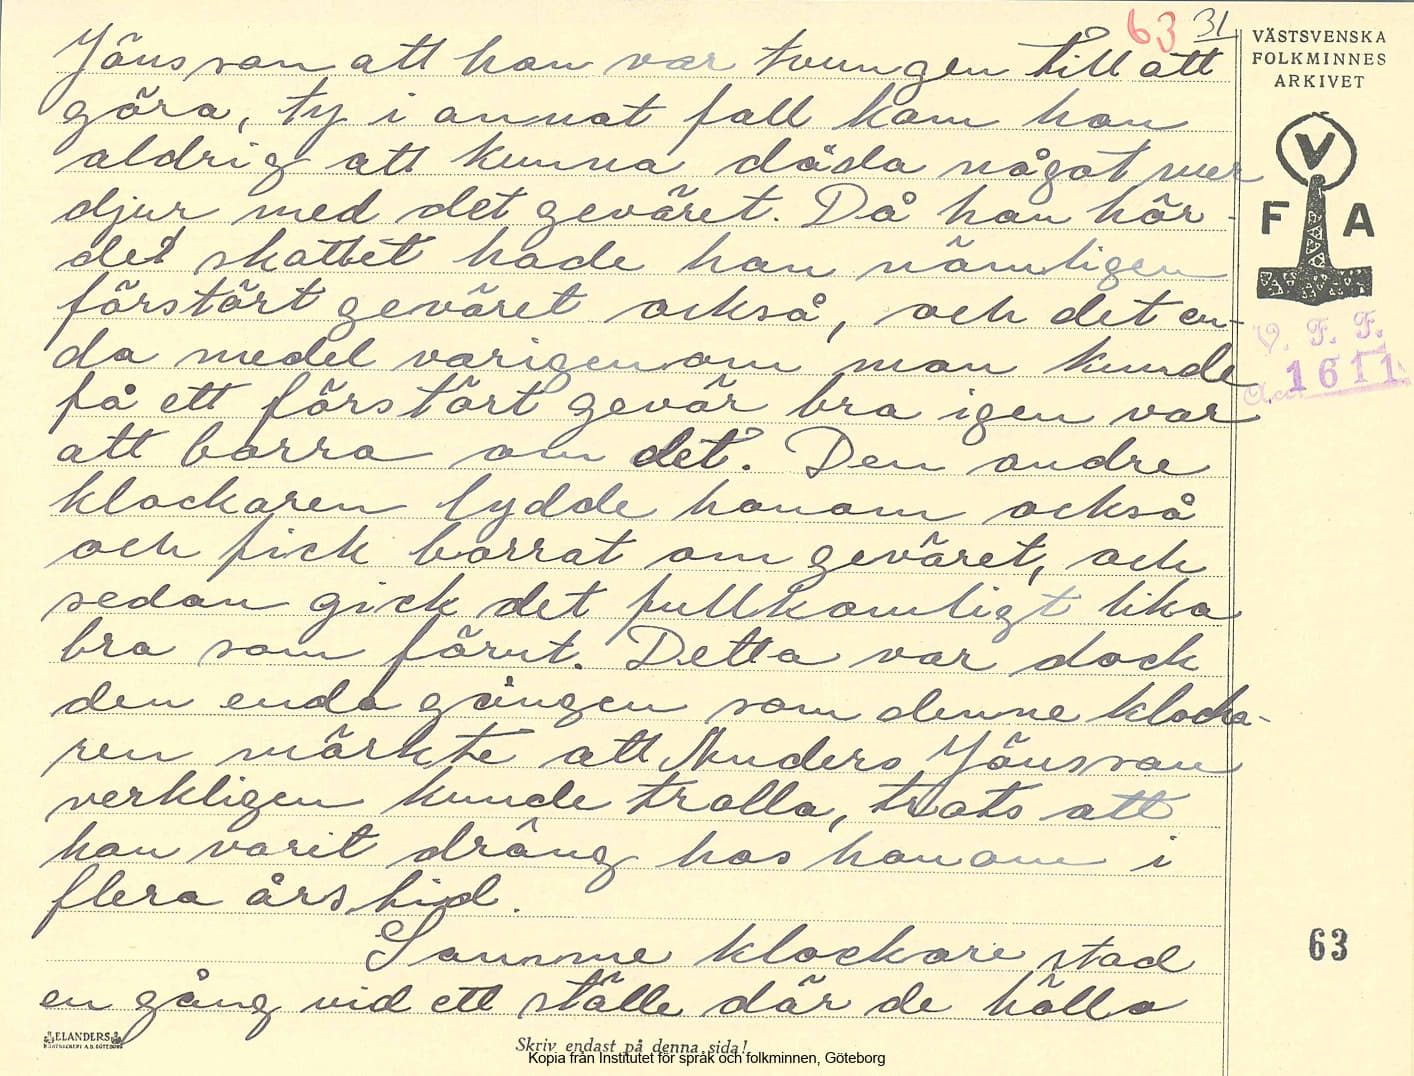 63 31
VÄSTSVENSKA
FOLKMINNES
ARKIVET
V
F A
V. F. F.
Acc. 1611
Jönsson att han var tvungen till att
göra, ty i annat fall kom han
aldrig att kunna döda något mer
djur med det geväret. Då han hör-
de skottet hade han nämligen
förstört geväret också, och det en-
da medel varigenom man kunde
få ett förstört gevär bra igen var
att borra om det. Den andre
klockaren lydde honom också
och fick borrat om geväret, och
sedan gick det fullkomligt lika
bra som förut. Detta var dock
den enda gången som denne klocka-
ren märkte att Anders Jönsson
verkligen kunde trolla, trots att
han varit dräng hos honom i
flera års tid.
Samme klockare stod
en gång vid ett ställe där de höllo
63
ELANDERS
BOKTRYCKERI A.B. GÖTEBORG
Skriv endast på denna sida!
Kopia från Institutet för språk och folkminnen, Göteborg